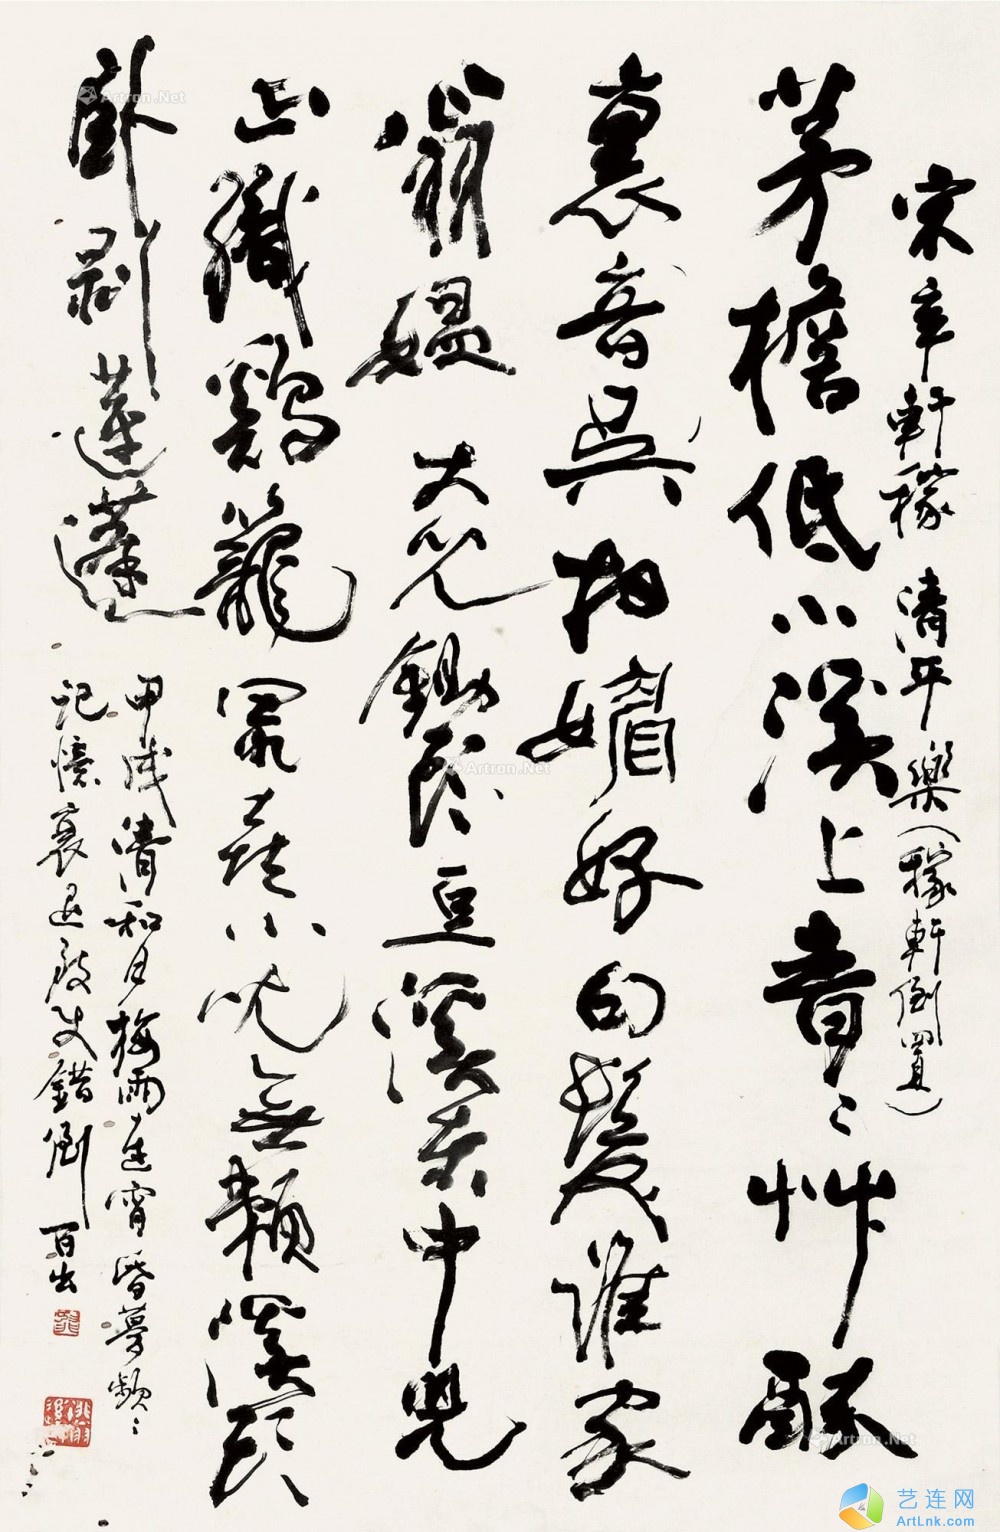 宋辛軒稼 清平樂（稼軒倒置）
茅檐低小溪上青〻艸醉
裏音吳相媚好白髮誰家
翁媼 大兒鋤豆溪东中兒
正織鷄籠 最喜小兒無賴溪頭
臥剥蓮蓬
甲戌清和月梅雨連宵昏夢頻〻
記憶衰退致使錯倒百出
Artron.Net
Artron.Net
Artron.Net
艺连网
ArtLnk.com